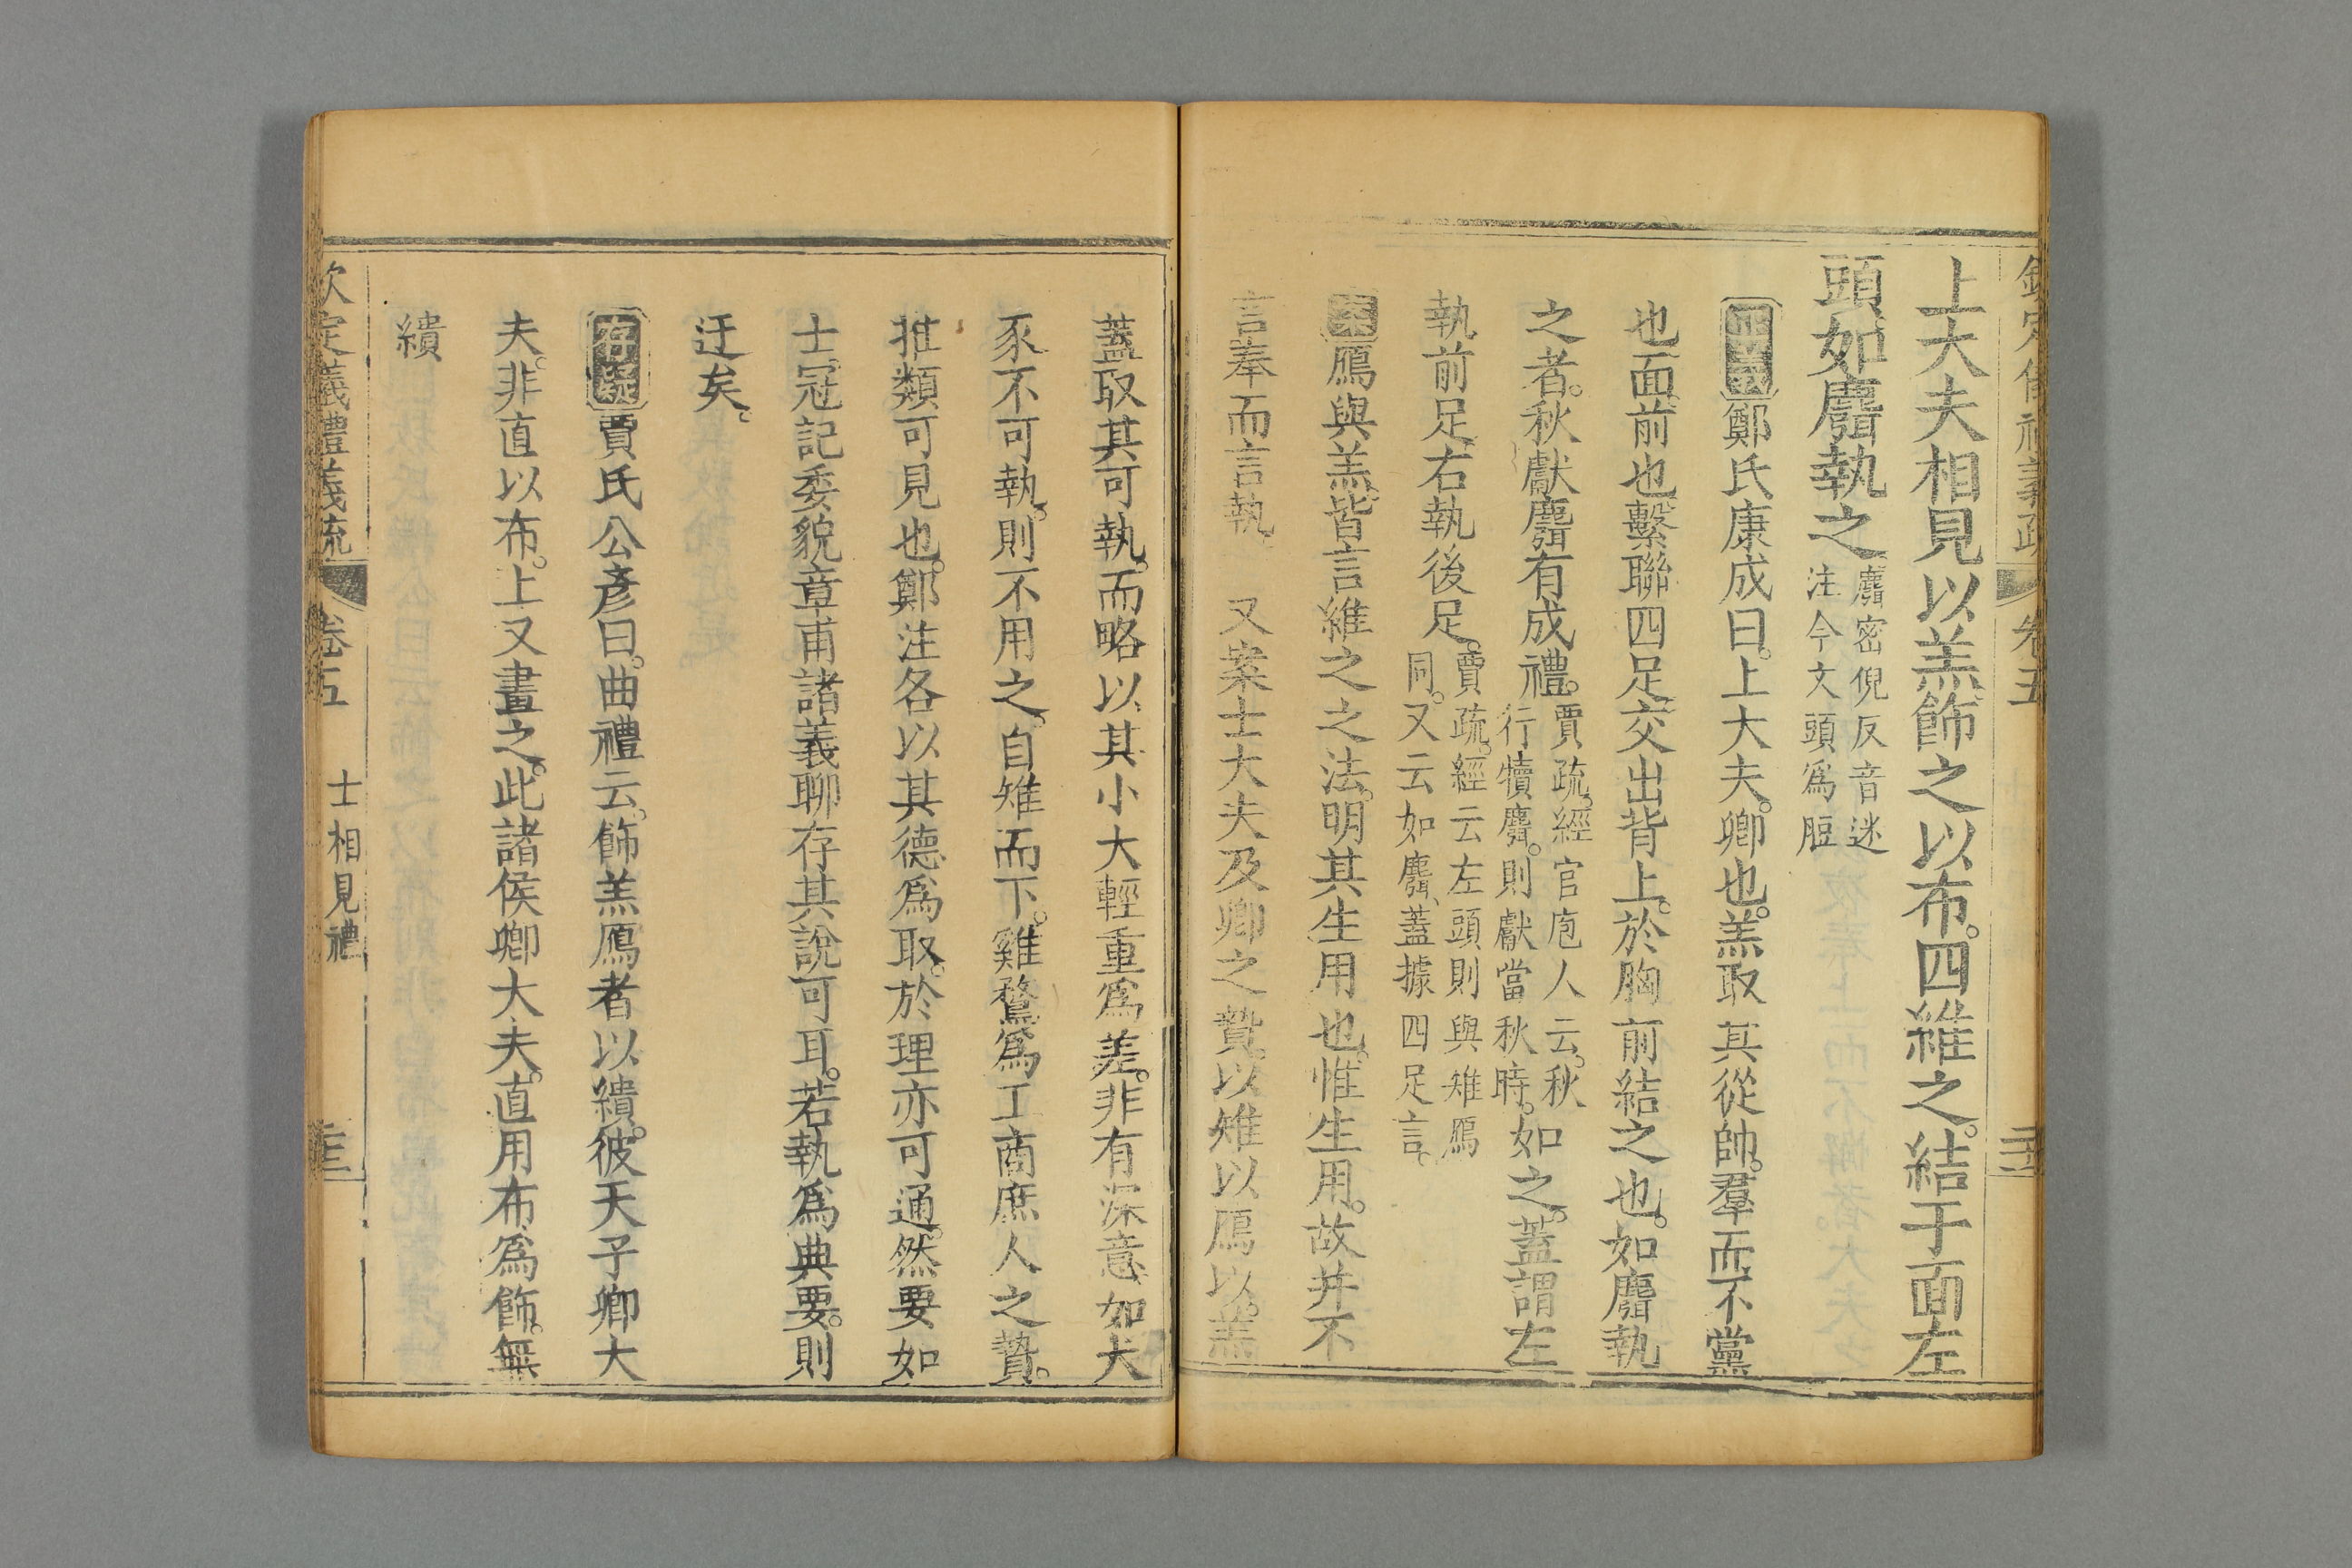 上大夫相見以羔飾之以布。四維之。結于面左
頭如麛執之麛密倪反音迷
注今文頭爲脰
正義鄭氏康成曰。上大夫。卿也。羔取其從帥。羣而不黨
也。面。前也。繫聯四足。交出背上。於胸前結之也。如麛執
之者。秋獻麛有成禮。賈疏。經官庖人云。秋
行犢麛。則獻當秋時。如之。蓋謂左
執前足。右執後足。賈疏。經云左頭則與雉鴈
同。又云如麛、蓋據四足言。
案鴈與羔皆言維之之法。明其生用也。惟生用。故并不
言奉而言執。 又案士大夫及卿之贄。以雉以鴈以羔。
蓋取其可執。而略以其小大輕重爲差。非有深意。如犬
豕不可執。則不用之。自雉而下。雞鶩爲工商庶人之贄。
推類可見也。鄭注各以其德爲取。於理亦可通。然要如
士冠記委貌章甫諸義聊存其說可耳。若執爲典要。則
迂矣。
存疑賈氏公彥曰。曲禮云。飾羔鴈者以繢。彼天子卿大
夫。非直以布。上又畫之。此諸侯卿大夫。直用布爲飾。無
繢
欽定儀禮義疏 卷五 士相見禮